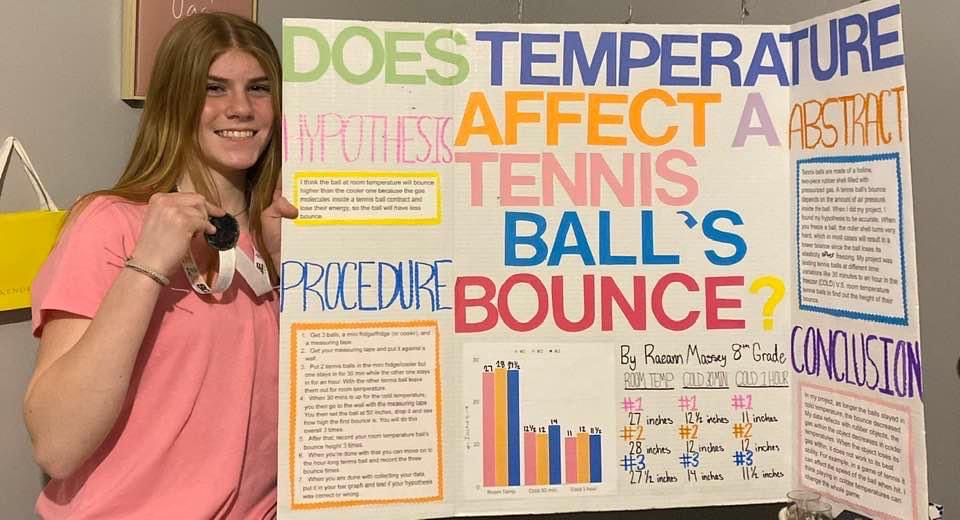 DOES TEMPERATURE
AFFECT A
TENNIS
BALL'S
BOUNCE?
HYPOTHESIS
I think the ball at room temperature will bounce
higher than the cooler one because the gas
molecules inside a tennis ball contract and
lose their energy, so the ball will have less
bounce.
PROCEDURE
1. Get 3 balls, a mini fridge/fridge (or cooler), and
a measuring tape.
2. Get your measuring tape and put it against a
wall.
3. Put 2 tennis balls in the mini fridge/cooler but
one stays in for 30 min while the other one stays
in for an hour. With the other tennis ball leave
them out for room temperature.
4. When 30 mins is up for the cold temperature,
you then go to the wall with the measuring tape.
You then set the ball at 50 inches, drop it and see
how high the first bounce is. You will do this
overall 3 times.
5. After that, record your room temperature ball's
bounce height 3 times.
6. When you're done with that you can move on to
the hour-long tennis ball and record the three
bounce times.
7. When you are done with collecting your data,
put it in your bar graph and test if your hypothesis
was correct or wrong.
#1 #2 #3
30
20
10
0
27 28 27½
12½ 12 14
11 12 11½
Room Temp Cold 30 min. Cold 1 hour
By Raeann Massey 8th Grade
ROOM TEMP COLD 30MIN COLD 1 HOUR
#1 #1 #1
27 inches 12½ inches 11 inches
#2 #2 #2
28 inches 12 inches 12 inches
#3 #3 #3
27½ inches 14 inches 11½ inches
ABSTRACT
Tennis balls are made of a hollow,
two-piece rubber shell filled with
pressurized gas. A tennis ball's bounce
depends on the amount of air pressure
inside the ball. When I did my project, I
found my hypothesis to be accurate. When
you freeze a ball, the outer shell turns very
hard, which in most cases will result in a
lower bounce since the ball loses its
elasticity after freezing. My project was
testing tennis balls at different time
variations like 30 minutes to an hour in the
freezer (COLD) V.S. room temperature
tennis balls to find out the height of their
bounce.
CONCLUSION
In my project, as longer the balls stayed in
cold temperature, the bounce decreased.
My data reflects with rubber objects, the
gas within the object decreases in colder
temperatures. When the object loses its
gas within, it does not work to its best
ability. For example, in a game of tennis it
can affect the speed of the ball when hit. I
think playing in colder temperatures can
change the whole game.